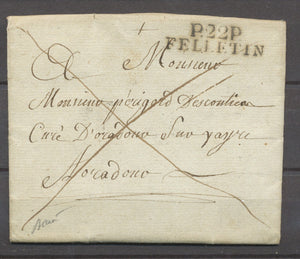 P.22.P
FELLETIN
A Monsieur
Monsieur périgord Descoutieu
Curé D'oradour Sur vayre
A oradour